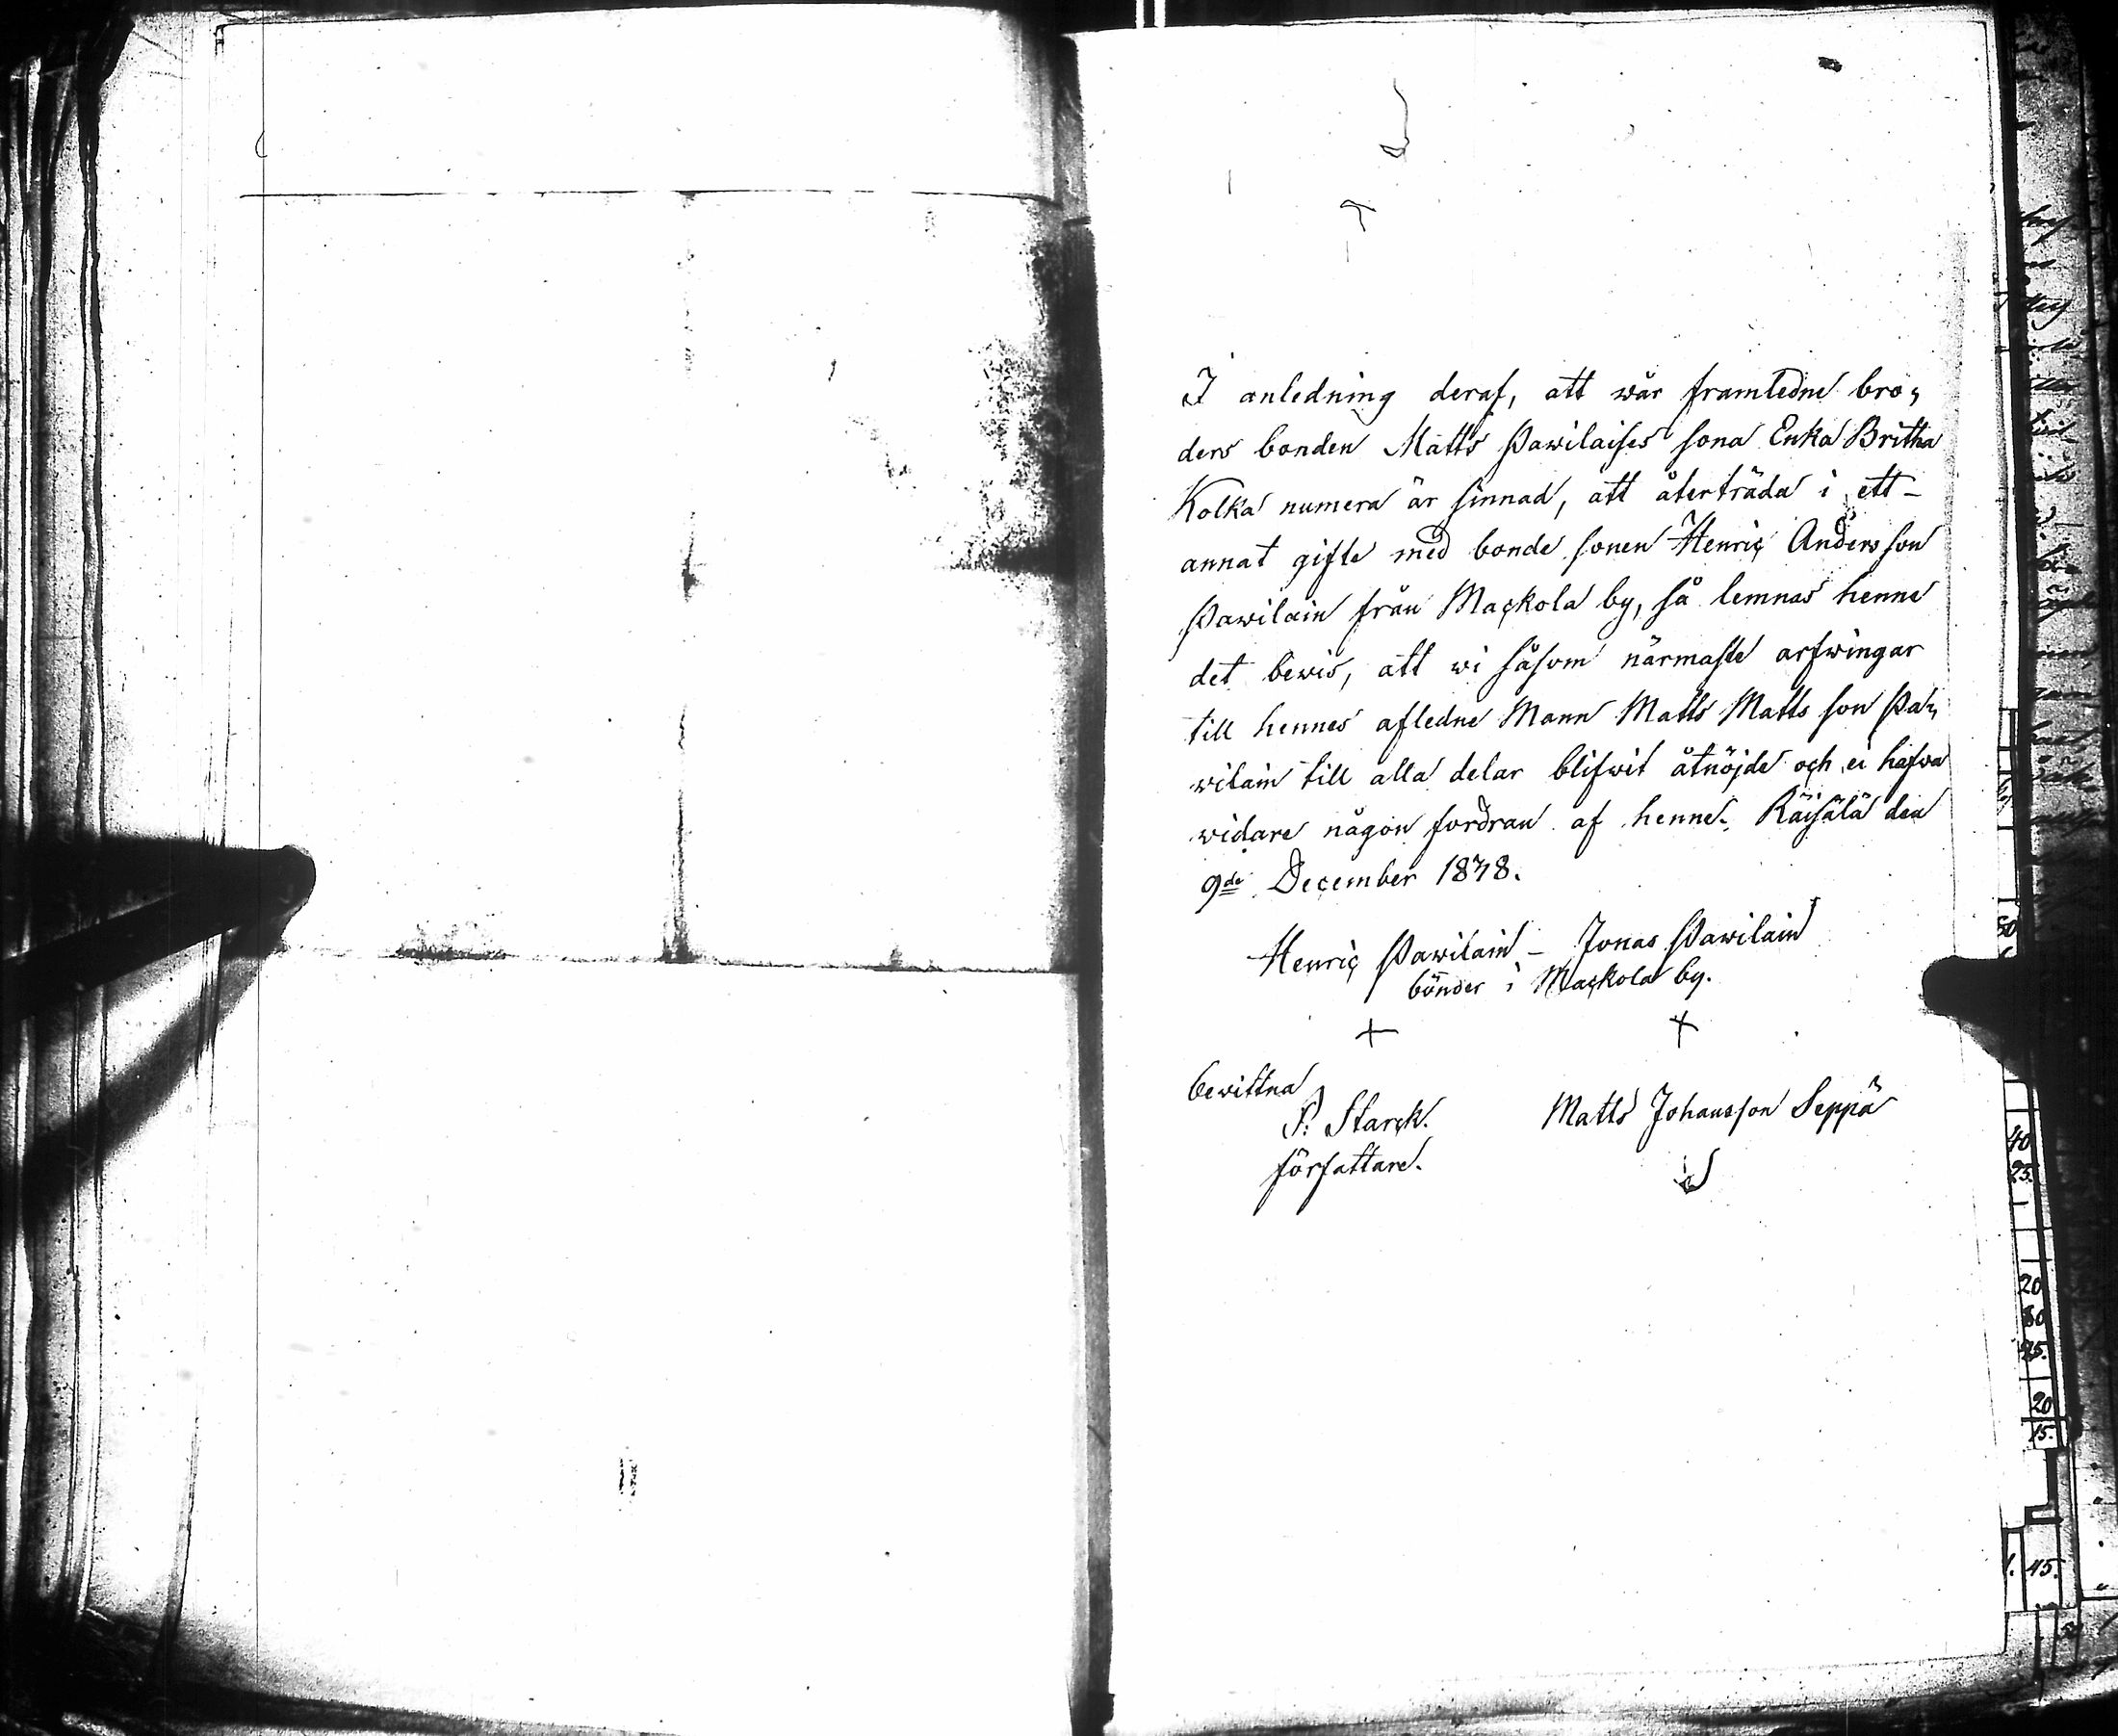 I anledning deraf, att wår framledne bro,
ders bonden Matts Pawilaises sona Enka Britha
Kolka numera är sinnad, att återträda i ett-
annat gifte med bonde sonen Henric Andersson
Pawilain från Mackola by, så lemnas henne
det bewis, att wi såsom närmaste arfwingar
till hennes afledne Mann Matts Matts son Pa,
wilain till alla delar blifwit åtnöjde och ei hafwa
widare någon fordran af henne. Räisälä den
9de December 1838.
Henric Pawilain - Jonas Pawilain
bönder i Mackola by.
bewittna
P. Starck. Matts Johansson Seppä
författare.
50
40
25.
20
80
25.
20
15.
1. 45.